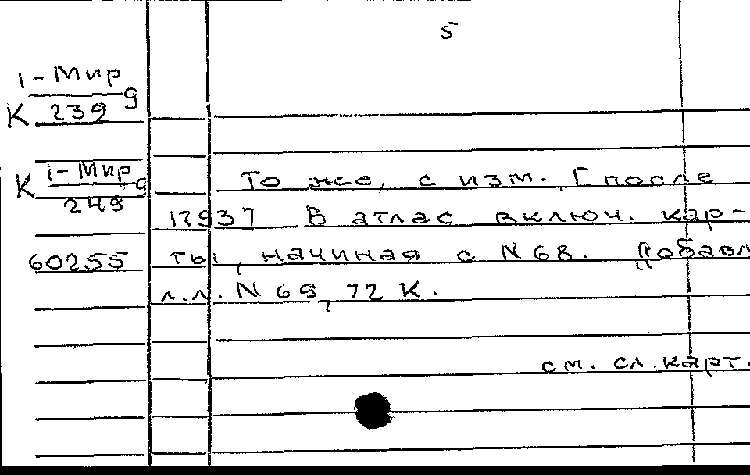 5
1-Мир
К 239 9
К 1-Мир 9
249
То же, с изм. [после
1793] В атлас включ. кар-
60255 ты, начиная с N 68. Добавл
л.л. N 69, 72 К.
см. сл. карт.